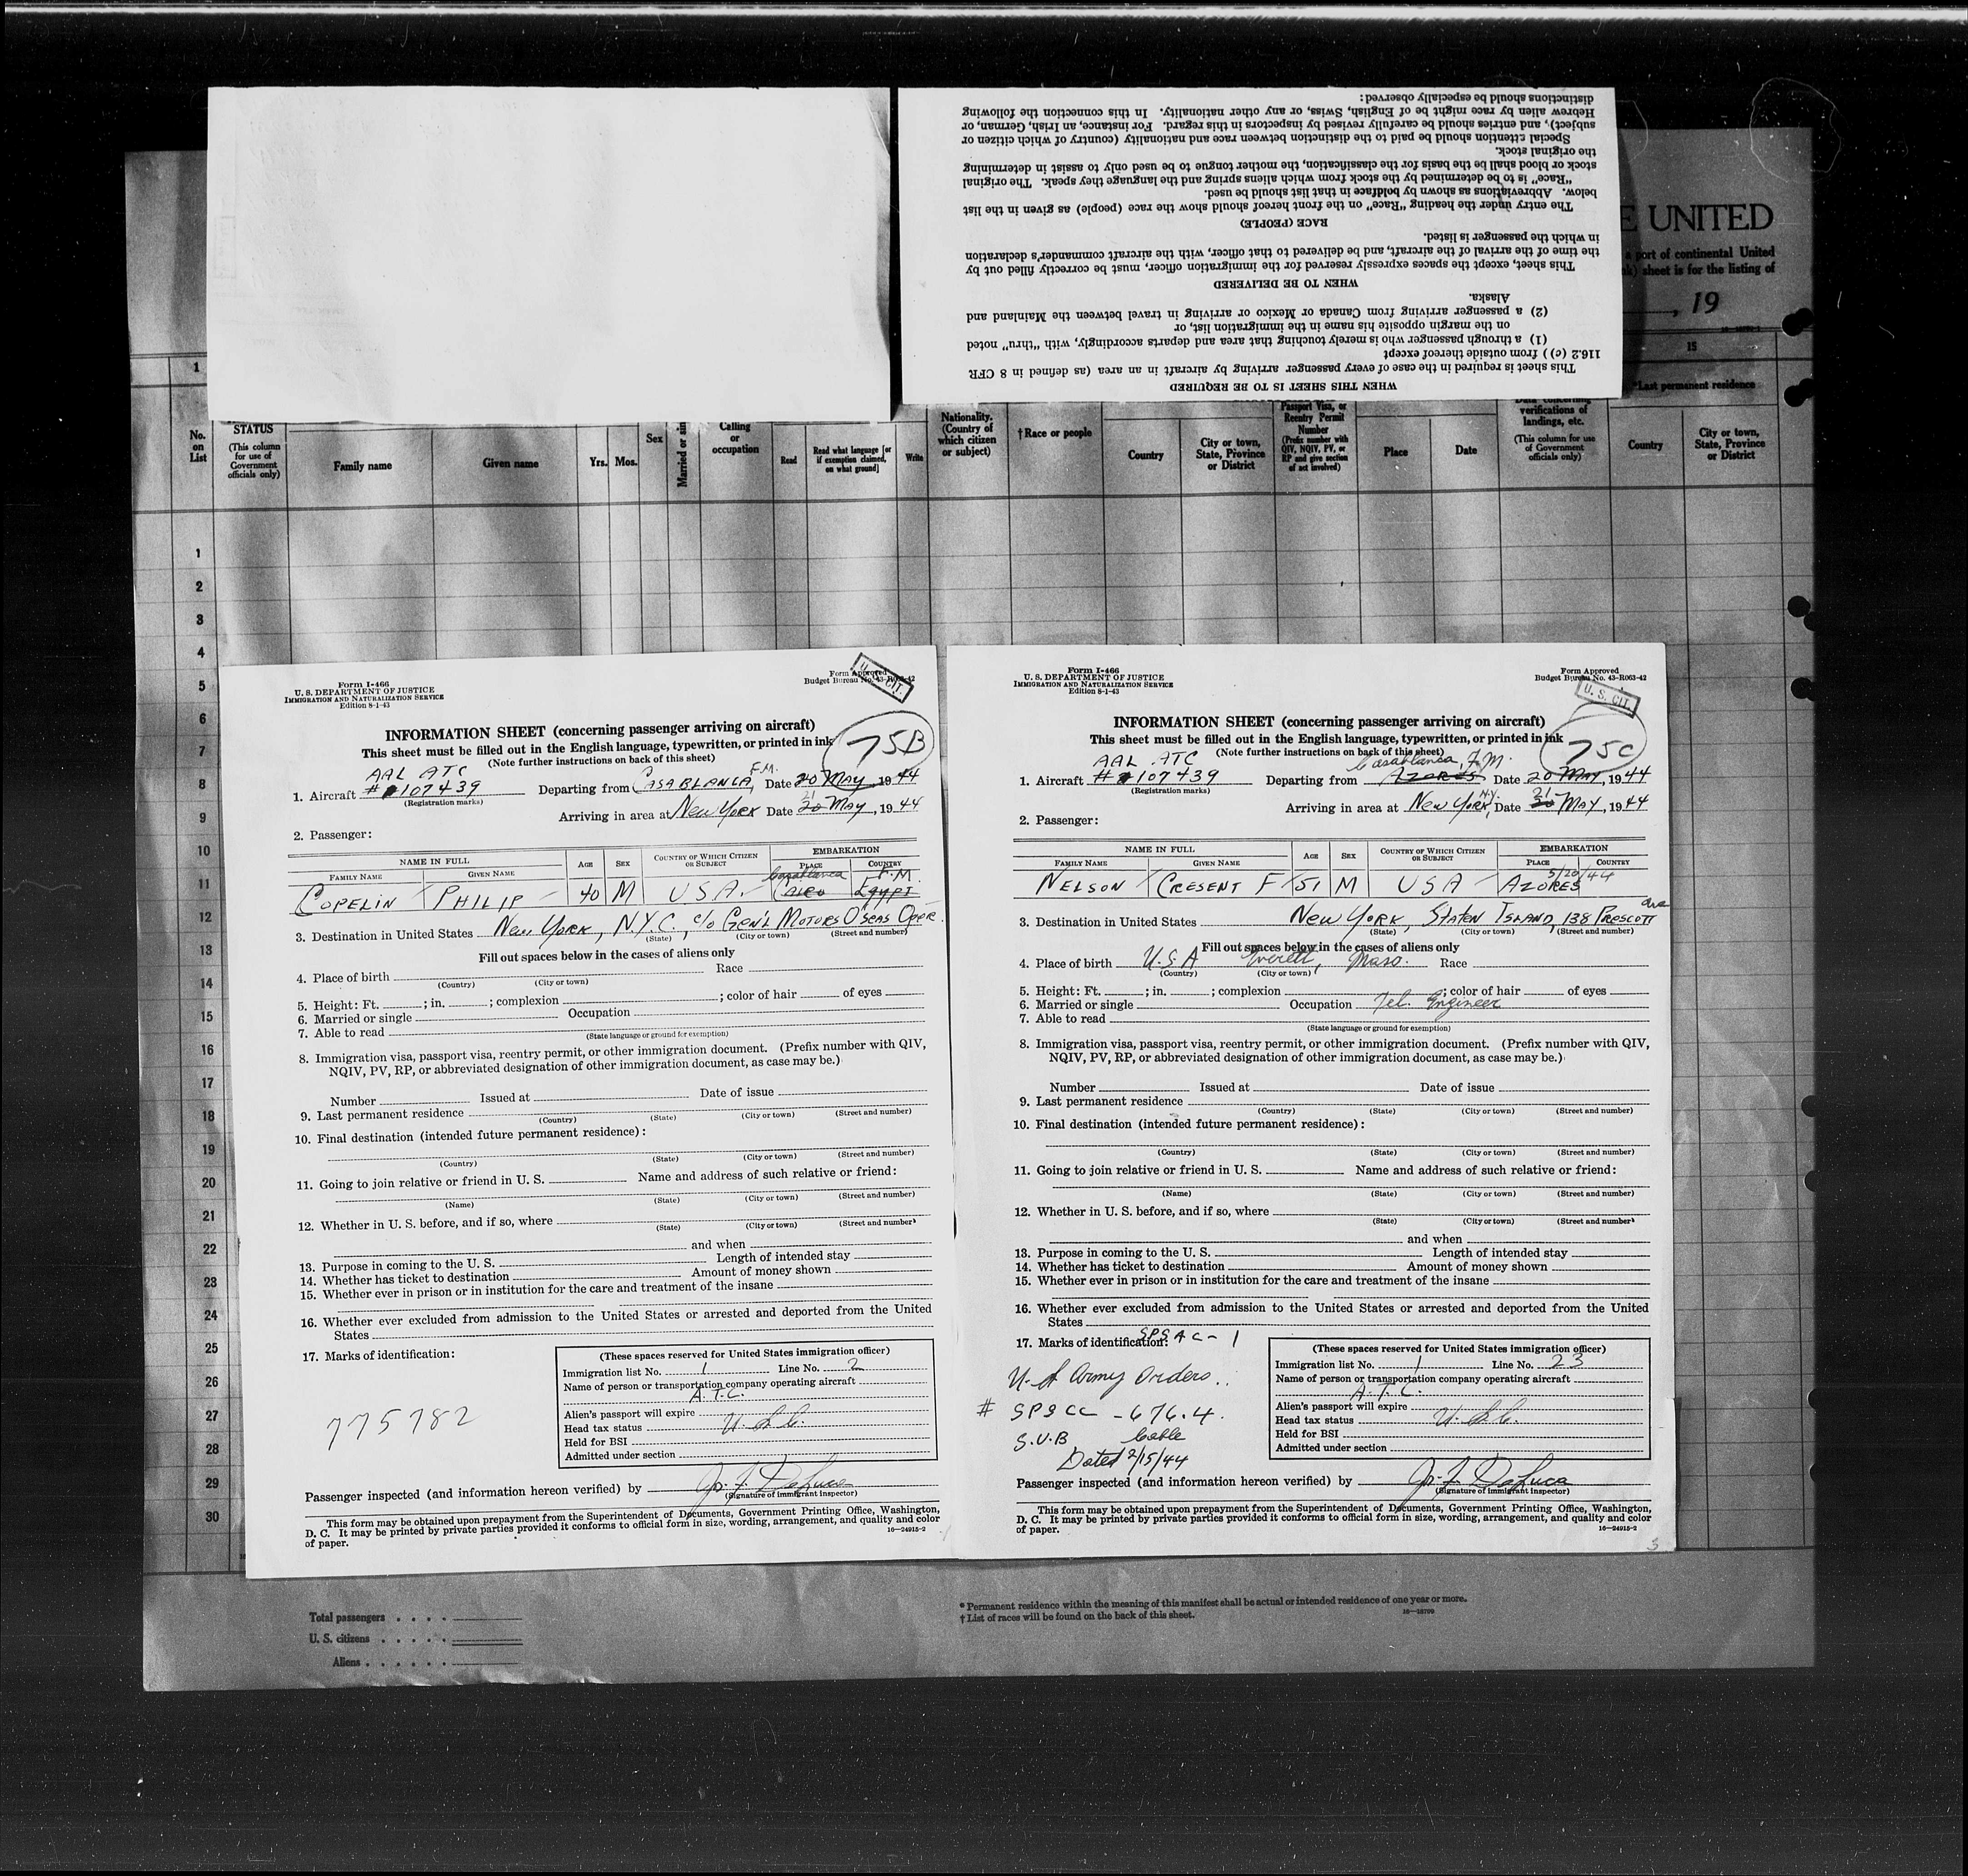 distinctions should be especially observed:
Hebrew alien by race might be of English, Swiss, or any other nationality. In this connection the following
subject), and entries should be carefully revised by inspectors in this regard. For instance, an Irish, German, or
Special attention should be paid to the distinction between race and nationality (country of which citizen or
the original stock.
stock or blood shall be the basis for the classification, the mother tongue to be used only to assist in determining
"Race" is to be determined by the stock from which aliens spring and the language they speak. The original
below. Abbreviations as shown by boldface in that list should be used.
The entry under the heading "Race" on the front hereof should show the race (people) as given in the list
RACE (PEOPLE)
in which the passenger is listed.
the time of the arrival of the aircraft, and be delivered to that officer, with the aircraft commander's declaration
This sheet, except the spaces expressly reserved for the immigration officer, must be correctly filled out by
WHEN TO BE DELIVERED
Alaska.
(2) a passenger arriving from Canada or Mexico or arriving in travel between the Mainland and
on the margin opposite his name in the immigration list, or
(1) a through passenger who is merely touching that area and departs accordingly, with "thru" noted
116.2 (c)) from outside thereof except
This sheet is required in the case of every passenger arriving by aircraft in an area (as defined in 8 CFR
WHEN THIS SHEET IS TO BE REQUIRED
E UNITED
a port of continental United
sheet is for the listing of
, 19
1
15
*Last permanent residence
No. on List
STATUS
(This column for use of Government officials only)
Family name
Given name
Yrs. Mos.
Sex
Married or sin
Calling or occupation
Read
Read what language [or if exemption claimed, on what ground]
Write
Nationality. (Country of which citizen or subject)
† Race or people
Country
City or town, State, Province or District
Passport Visa, or Reentry Permit Number
(Prefix number with QIV, NQIV, PV, or RP and give section of act involved)
Place
Date
verifications of landings, etc.
(This column for use of Government officials only)
Country
City or town, State, Province or District
1
2
3
4
5
6
7
8
9
10
11
12
13
14
15
16
17
18
19
20
21
22
23
24
25
26
27
28
29
30
Form I-466
U. S. DEPARTMENT OF JUSTICE
IMMIGRATION AND NATURALIZATION SERVICE
Edition 8-1-43
Form Approved
Budget Bureau No. 43-R063-42
U. S. CIT.
INFORMATION SHEET (concerning passenger arriving on aircraft)
75B
This sheet must be filled out in the English language, typewritten, or printed in ink
(Note further instructions on back of this sheet)
AAL ATC
F.M.
1. Aircraft # 107439 Departing from CASABLANCA, Date 20 MAY, 1944
(Registration marks)
21
Arriving in area at New York Date 20 MAY, 1944
2. Passenger:
NAME IN FULL
AGE
SEX
COUNTRY OF WHICH CITIZEN OR SUBJECT
EMBARKATION
FAMILY NAME
GIVEN NAME
PLACE
COUNTRY
Casablanca F.M.
COPELIN PHILIP 40 M USA. CAIRO EGYPT
3. Destination in United States New York, N.Y.C., c/o GEN'L MOTORS O'SEAS OPER.
(State) (City or town) (Street and number)
Fill out spaces below in the cases of aliens only
4. Place of birth Race
(Country) (City or town)
5. Height: Ft. ; in. ; complexion ; color of hair of eyes
6. Married or single Occupation
7. Able to read
(State language or ground for exemption)
8. Immigration visa, passport visa, reentry permit, or other immigration document. (Prefix number with QIV,
NQIV, PV, RP, or abbreviated designation of other immigration document, as case may be.)
Number Issued at Date of issue
9. Last permanent residence
(Country) (State) (City or town) (Street and number)
10. Final destination (intended future permanent residence):
(Country) (State) (City or town) (Street and number)
11. Going to join relative or friend in U. S. Name and address of such relative or friend:
(Name) (State) (City or town) (Street and number)
12. Whether in U. S. before, and if so, where
(State) (City or town) (Street and number)
and when
13. Purpose in coming to the U. S. Length of intended stay
14. Whether has ticket to destination Amount of money shown
15. Whether ever in prison or in institution for the care and treatment of the insane
16. Whether ever excluded from admission to the United States or arrested and deported from the United
States
17. Marks of identification:
(These spaces reserved for United States immigration officer)
Immigration list No. 1 Line No. 2
Name of person or transportation company operating aircraft
A.T.C.
Alien's passport will expire
Head tax status U.S.C.
Held for BSI
Admitted under section
775782
Passenger inspected (and information hereon verified) by Jos. F. DeLuca
(Signature of immigrant inspector)
This form may be obtained upon prepayment from the Superintendent of Documents, Government Printing Office, Washington,
D. C. It may be printed by private parties provided it conforms to official form in size, wording, arrangement, and quality and color
of paper.
16—24915-2
Form I-466
U. S. DEPARTMENT OF JUSTICE
IMMIGRATION AND NATURALIZATION SERVICE
Edition 8-1-43
Form Approved
Budget Bureau No. 43-R063-42
U. S. CIT.
INFORMATION SHEET (concerning passenger arriving on aircraft)
75C
This sheet must be filled out in the English language, typewritten, or printed in ink
(Note further instructions on back of this sheet)
AAL ATC
Casablanca, F.M.
1. Aircraft # 107439 Departing from AZORES Date 20 MAY, 1944
(Registration marks)
N.Y. 21
Arriving in area at New York, Date 20 MAY, 1944
2. Passenger:
NAME IN FULL
AGE
SEX
COUNTRY OF WHICH CITIZEN OR SUBJECT
EMBARKATION
FAMILY NAME
GIVEN NAME
PLACE
COUNTRY
5/20/44
NELSON CRESENT F 51 M USA AZORES
Ave
3. Destination in United States New York, STATEN ISLAND, 138 PRESCOTT
(State) (City or town) (Street and number)
Fill out spaces below in the cases of aliens only
4. Place of birth U.S.A Everett, Mass. Race
(Country) (City or town)
5. Height: Ft. ; in. ; complexion ; color of hair of eyes
6. Married or single Occupation Tel. Engineer
7. Able to read
(State language or ground for exemption)
8. Immigration visa, passport visa, reentry permit, or other immigration document. (Prefix number with QIV,
NQIV, PV, RP, or abbreviated designation of other immigration document, as case may be.)
Number Issued at Date of issue
9. Last permanent residence
(Country) (State) (City or town) (Street and number)
10. Final destination (intended future permanent residence):
(Country) (State) (City or town) (Street and number)
11. Going to join relative or friend in U. S. Name and address of such relative or friend:
(Name) (State) (City or town) (Street and number)
12. Whether in U. S. before, and if so, where
(State) (City or town) (Street and number)
and when
13. Purpose in coming to the U. S. Length of intended stay
14. Whether has ticket to destination Amount of money shown
15. Whether ever in prison or in institution for the care and treatment of the insane
16. Whether ever excluded from admission to the United States or arrested and deported from the United
States
17. Marks of identification: SPSAC-1
U.S Army Orders.
# SPSCC-676.4.
S.V.B Cable
Dated 2/15/44
(These spaces reserved for United States immigration officer)
Immigration list No. 1 Line No. 23
Name of person or transportation company operating aircraft
A.T.C.
Alien's passport will expire
Head tax status U.S.C.
Held for BSI
Admitted under section
Passenger inspected (and information hereon verified) by Jos. F. DeLuca
(Signature of immigrant inspector)
This form may be obtained upon prepayment from the Superintendent of Documents, Government Printing Office, Washington,
D. C. It may be printed by private parties provided it conforms to official form in size, wording, arrangement, and quality and color
of paper.
16—24915-2
3
Total passengers . . . .
U. S. citizens . . . . .
Aliens . . . . . .
* Permanent residence within the meaning of this manifest shall be actual or intended residence of one year or more.
† List of races will be found on the back of this sheet.